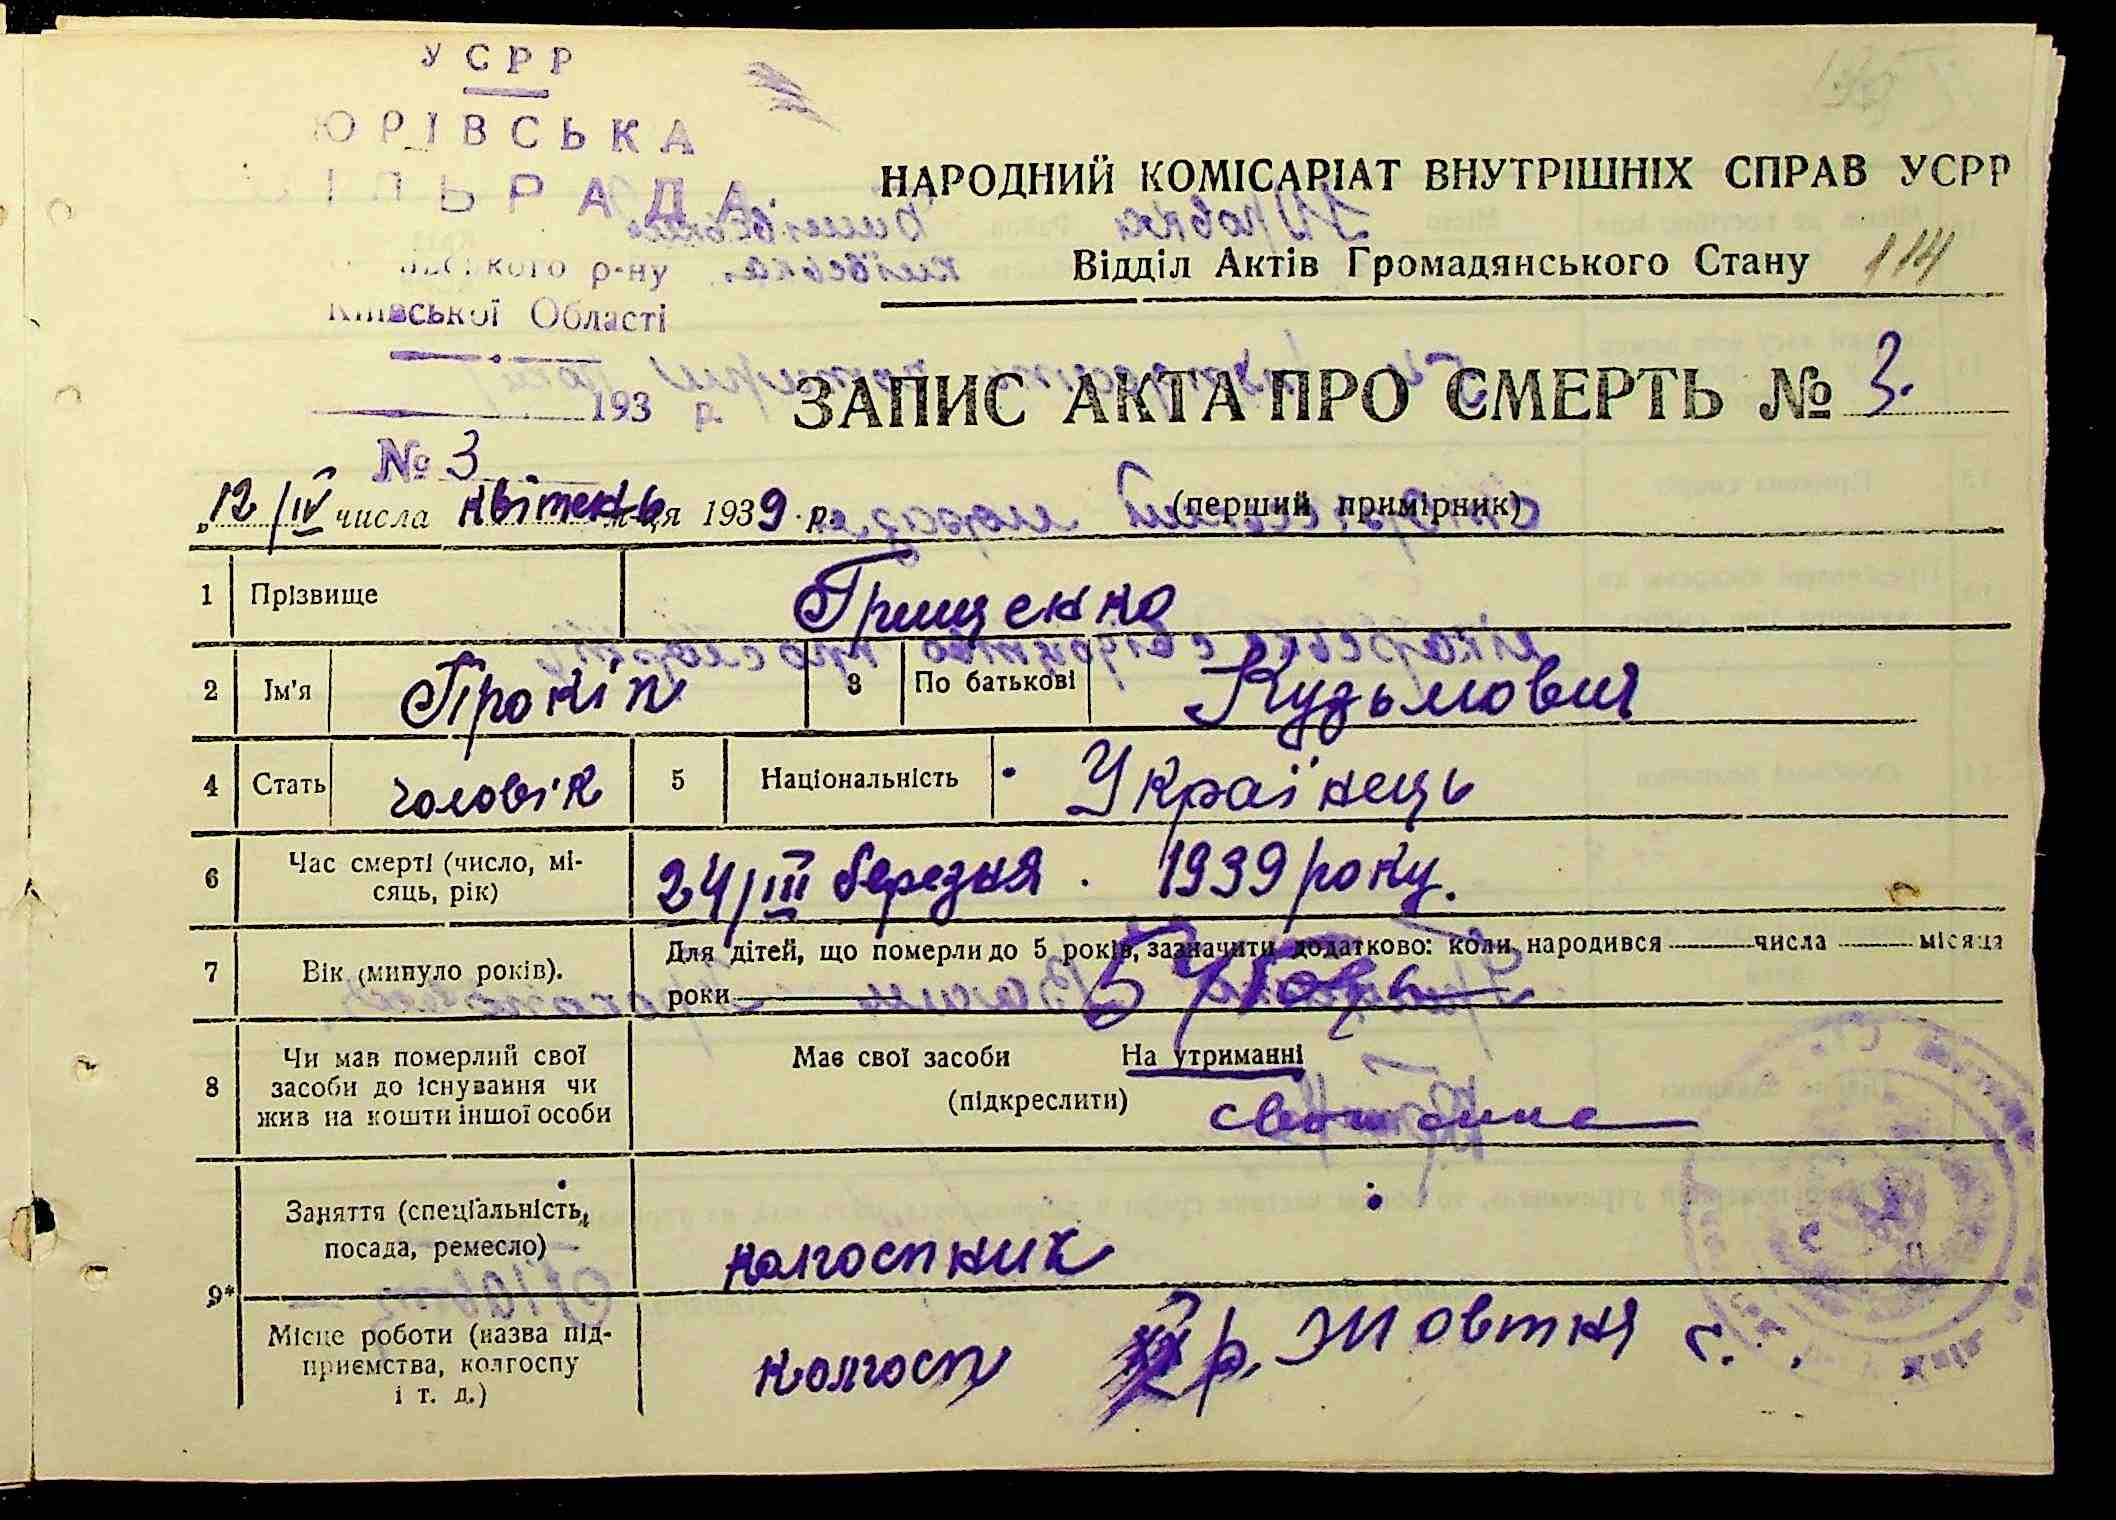 УСРР
ЮРІВСЬКА
ІЛЬРАДА
ського р-ну
Київської Області
193 р
№ 3
НАРОДНИЙ КОМІСАРІАТ ВНУТРІШНІХ СПРАВ УСРР
Відділ Актів Громадянського Стану 114
ЗАПИС АКТА ПРО СМЕРТЬ № 3.
"12/IV числа квітень м-ця 1939 р.
(перший примірник)
1 Прізвище Грищенко
2 Ім'я Прокіп 3 По батькові Кузьмович
4 Стать чоловік 5 Національність Українець
6 Час смерті (число, мі-
сяць, рік) 24/III березня . 1939 року.
7 Вік (минуло років). Для дітей, що померли до 5 років, зазначити додатково: коли народився числа місяця
роки 54
8 Чи мав померлий свої
засоби до існування чи
жив на кошти іншої особи
Має свої засоби На утриманні
(підкреслити)
свого сина
9* Заняття (спеціальність,
посада, ремесло) колгоспник
Місце роботи (назва під-
приємства, колгоспу
і т. д.) колгосп ХХ р. Жовтня с.